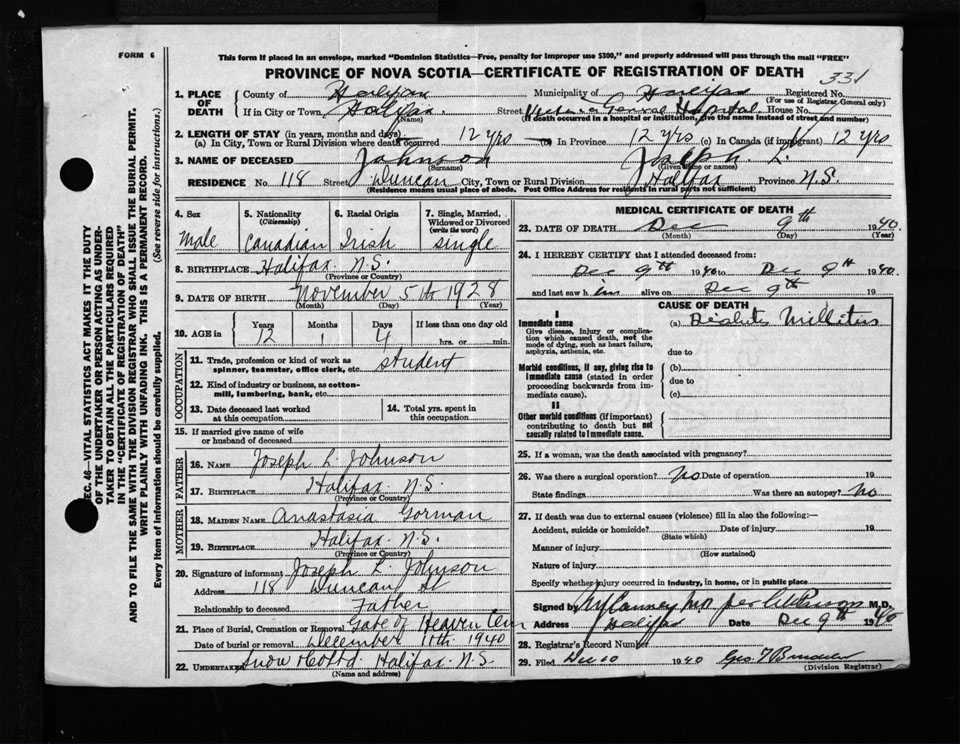 FORM 6
This form if placed in an envelope, marked "Dominion Statistics—Free, penalty for improper use $300," and properly addressed will pass through the mail "FREE"
PROVINCE OF NOVA SCOTIA—CERTIFICATE OF REGISTRATION OF DEATH
331
1. PLACE OF DEATH
County of Halifax Municipality of Halifax Registered No.
(For use of Registrar General only)
If in City or Town Halifax. Street Victoria General Hospital House No.
(Name) (If death occurred in a hospital or institution, give the name instead of street and number)
2. LENGTH OF STAY (in years, months and days)
(a) In City, Town or Rural Division where death occurred 12 yrs (b) In Province 12 yrs (c) In Canada (if immigrant) 12 yrs
3. NAME OF DECEASED Johnson Joseph L.
(Surname) (Given name or names)
RESIDENCE No. 118 Street Duncan City, Town or Rural Division Halifax Province N.S.
(Residence means usual place of abode. Post Office Address for residents in rural parts not sufficient)
4. Sex Male
5. Nationality (Citizenship) Canadian
6. Racial Origin Irish
7. Single, Married, Widowed or Divorced (write the word) single
8. BIRTHPLACE Halifax N.S.
(Province or Country)
9. DATE OF BIRTH November 5th 1928
(Month) (Day) (Year)
10. AGE in Years 12 Months 1 Days 4 If less than one day old hrs. or min.
OCCUPATION
11. Trade, profession or kind of work as spinner, teamster, office clerk, etc. student
12. Kind of industry or business, as cotton-mill, lumbering, bank, etc.
13. Date deceased last worked at this occupation
14. Total yrs. spent in this occupation
15. If married give name of wife or husband of deceased
FATHER
16. NAME Joseph L. Johnson
17. BIRTHPLACE Halifax N.S.
(Province or Country)
MOTHER
18. MAIDEN NAME Anastasia Gorman
19. BIRTHPLACE Halifax N.S.
(Province or Country)
20. Signature of informant Joseph L. Johnson
Address 118 Duncan St
Relationship to deceased Father
21. Place of Burial, Cremation or Removal Gate of Heaven Cem
Date of burial or removal December 11th 1940
22. UNDERTAKER Snow & Co Ltd. Halifax N.S
(Name and address)
MEDICAL CERTIFICATE OF DEATH
23. DATE OF DEATH Dec 9th 1940
(Month) (Day) (Year)
24. I HEREBY CERTIFY that I attended deceased from:
Dec 9th 1940 to Dec 9th 1940
and last saw him alive on Dec 9th 19
CAUSE OF DEATH
I
Immediate cause
Give disease, injury or complication which caused death, not the mode of dying, such as heart failure, asphyxia, asthenia, etc.
(a) Diabetes Millitus
due to
Morbid conditions, if any, giving rise to immediate cause (stated in order proceeding backwards from immediate cause).
(b)
due to
(c)
II
Other morbid conditions (if important) contributing to death but not causally related to immediate cause.
25. If a woman, was the death associated with pregnancy?
26. Was there a surgical operation? No Date of operation 19
State findings Was there an autopsy? No
27. If death was due to external causes (violence) fill in also the following:—
Accident, suicide or homicide? Date of injury 19
(State which)
Manner of injury
(How sustained)
Nature of injury
Specify whether injury occurred in industry, in home, or in public place
Signed by MD per M.D.
Address Halifax Date Dec 9th 1940
28. Registrar's Record Number
29. Filed Dec 10 1940 Geo.
(Division Registrar)
SEC. 46—VITAL STATISTICS ACT MAKES IT THE DUTY
OF THE UNDERTAKER OR PERSON ACTING AS UNDER-
TAKER TO OBTAIN ALL THE PARTICULARS REQUIRED
IN THE "CERTIFICATE OF REGISTRATION OF DEATH"
AND TO FILE THE SAME WITH THE DIVISION REGISTRAR WHO SHALL ISSUE THE BURIAL PERMIT.
WRITE PLAINLY WITH UNFADING INK. THIS IS A PERMANENT RECORD.
Every item of Information should be carefully supplied. (See reverse side for instructions.)